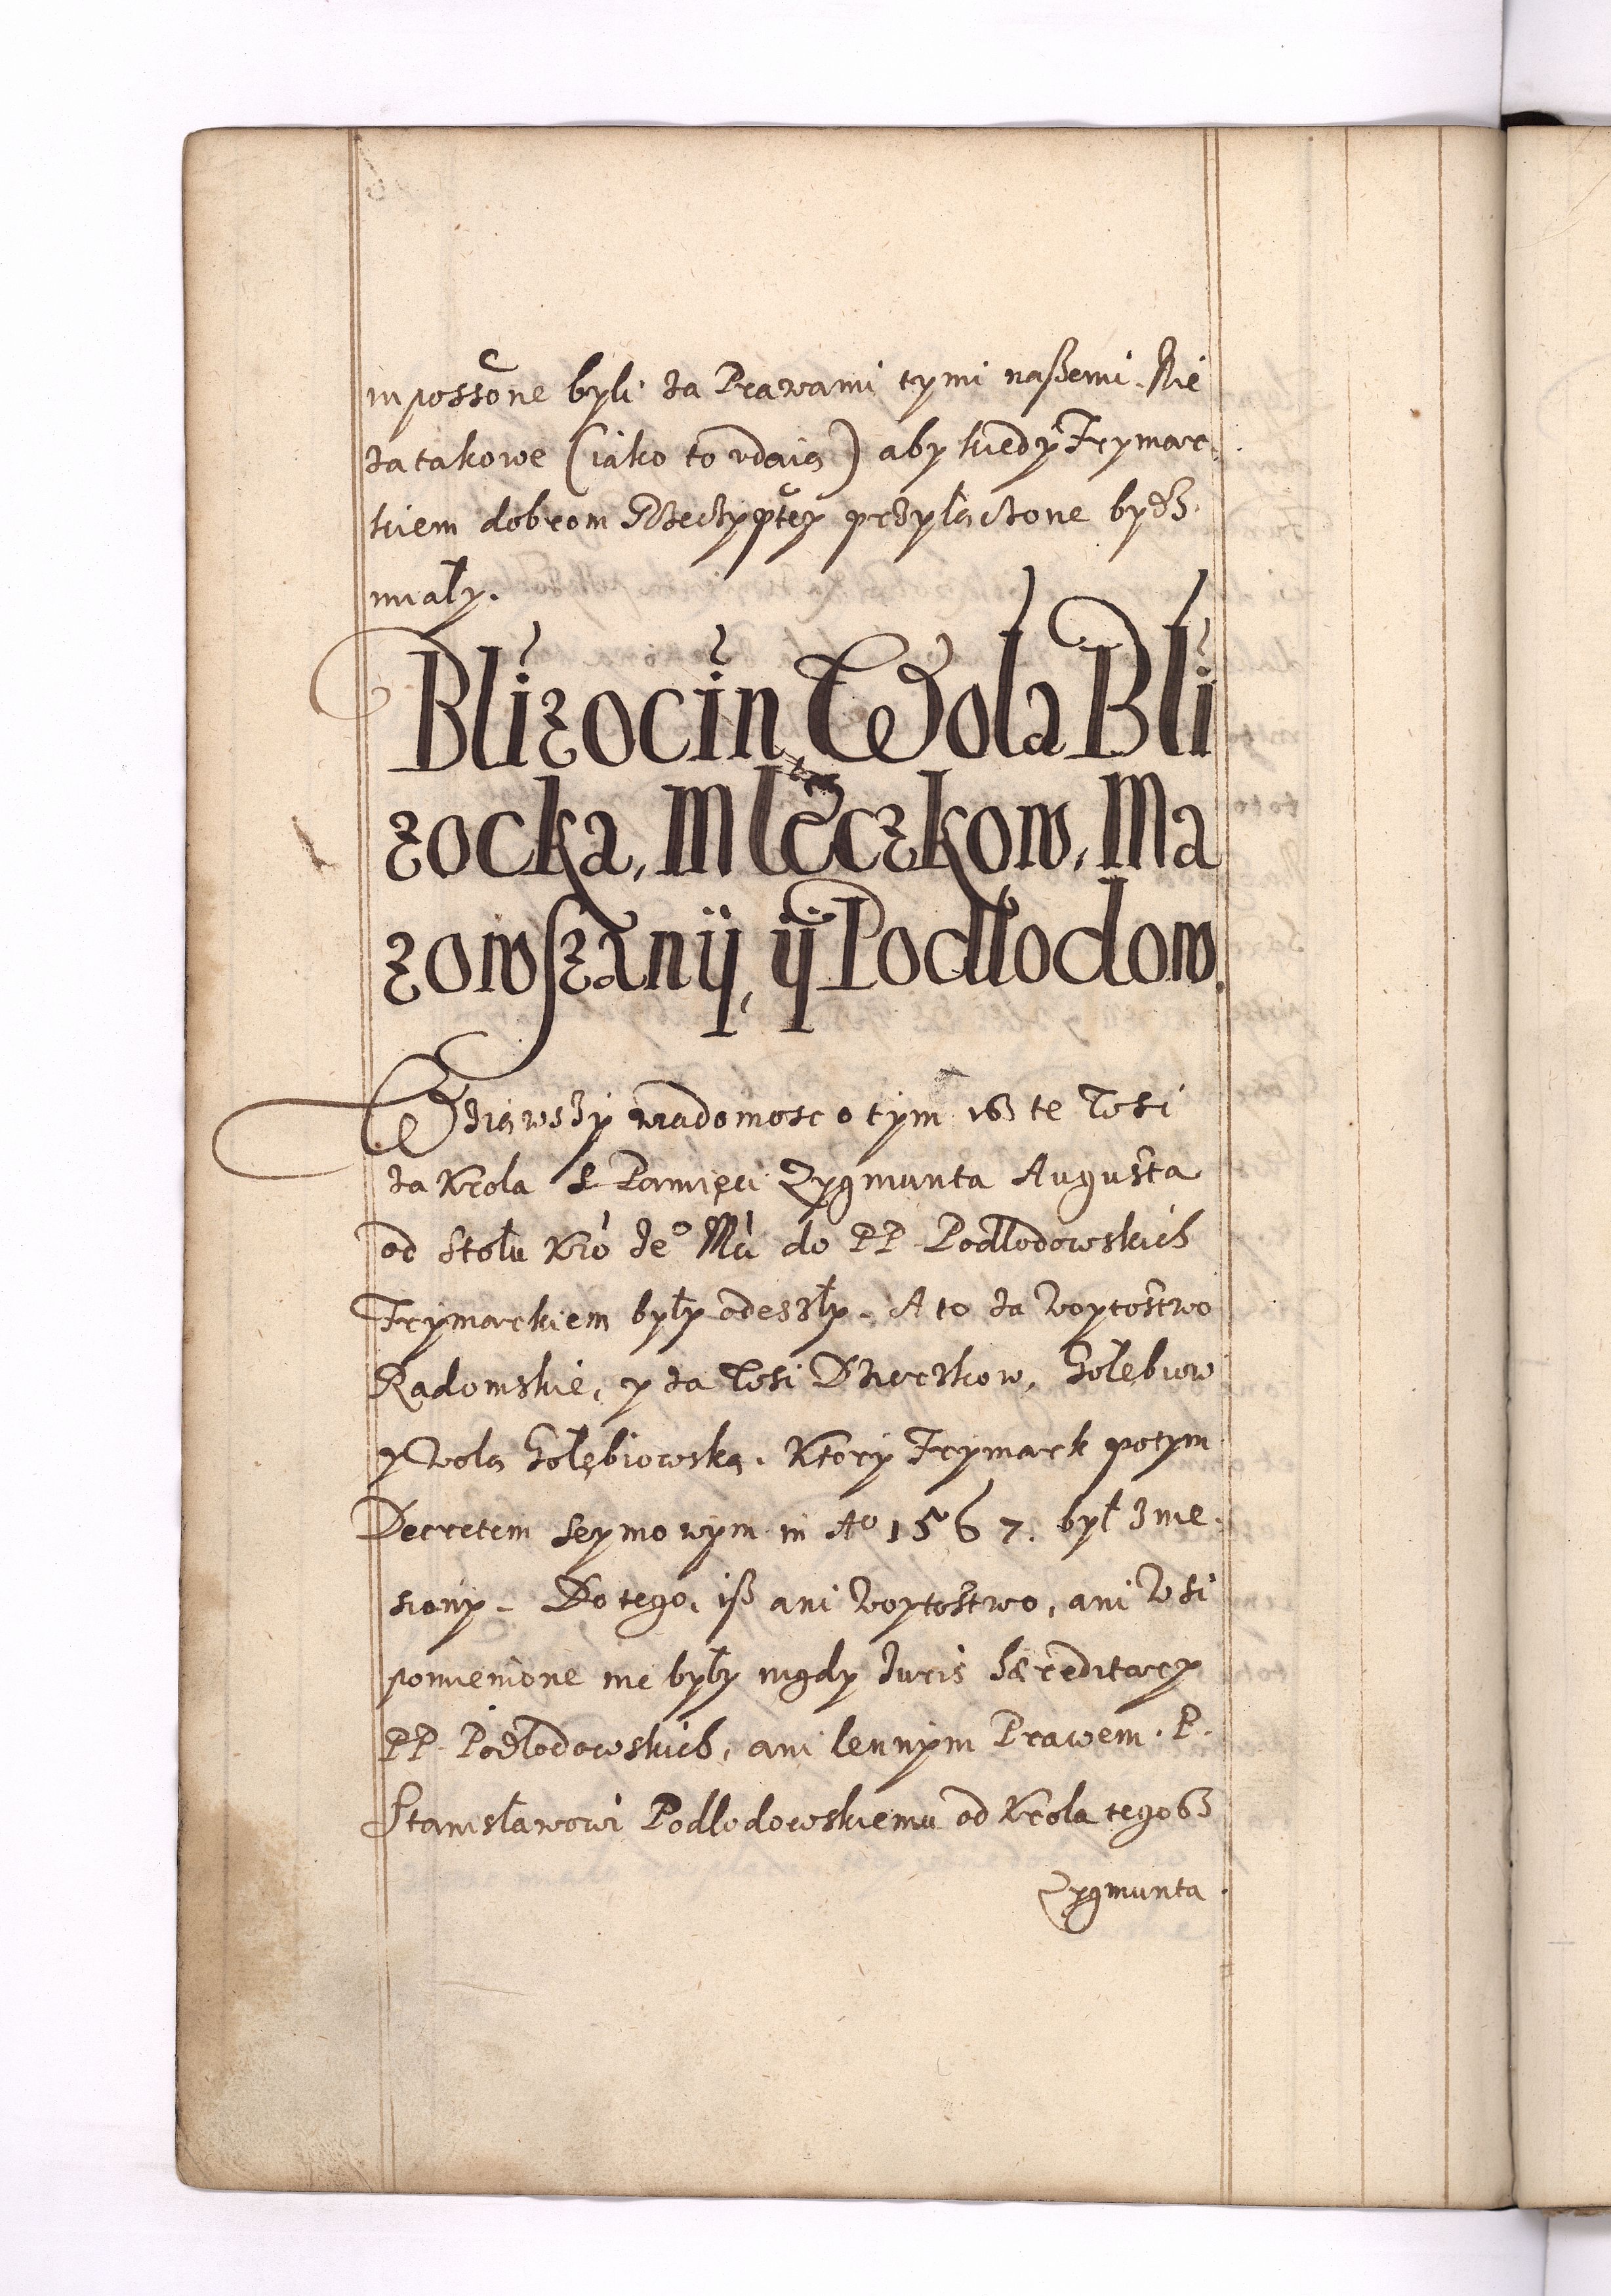 in possone byli za Prawami tymi naßemi. Nie
za takowe (iako to vdaią) aby kiedy Frymar-
kiem dobrom Rzeczyptey przyłaczone bydz
miały.
Blizocin, Wola Bli
zocka, Mleczkow, Ma
zowszany, y Podlodow.
Wziąwszy wiadomosc o tym iż te Wsi
za Krola S Pamięci Zygmunta Augusta
od stołu Kro Jeo Mci do PP. Podlodowskich
Frymarkiem były odeszły. A to za Woytostwo
Radomskie, y za Wsi Dzierzkow, Gołębiow
y Wolą Gołębiowską. Ktory Frymark potym
Decretem Seymowym in Ao 1567. był znie-
siony. Do tego, iß ani Woytostwo, ani Wsi
pomienione nie były nigdy Juris Hæreditary
PP. Podlodowskich, ani lennym Prawem. P.
Stanisławowi Podlodowskiemu od Krola tegoż
Zygmunta